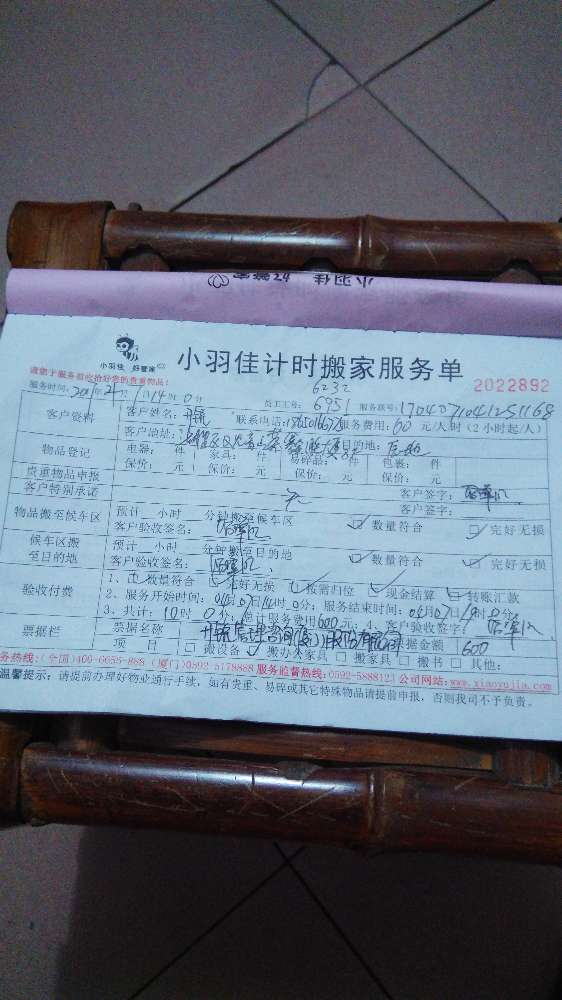 小羽佳 好管家
小羽佳 好管家
小羽佳计时搬家服务单
请您于服务前收拾好您的贵重物品:
2022892
服务时间: 年 月 14时0分
6232
员工工号: 6951 服务联号:1704071041251168
客户资料 客户姓名: 联系电话: 服务费用:60元/人/时(2小时起/人)
客户地址: 目的地:
物品登记 电器: 件 家具: 件 易碎品: 件 包裹: 件
贵重物品申报 保价: 元 保价: 元 保价: 元 保价: 元
客户特别承诺 无 客户签字:
客户签字:
物品搬至候车区 预计 小时 分钟搬至候车区
客户验收签名: 数量符合 完好无损
候车区搬至目的地 预计 小时 分钟搬至目的地
客户验收签名: 数量符合 完好无损
验收付费 1、数量符合 完好无损 按需归位 现金结算 转账汇款
2、服务开始时间:04月07日14时0分; 服务结束时间:04月07日 时0分;
3、共计:10时0分;总计服务费用600元;4、客户验收签字:
票据栏 票据名称 票据金额 600
项 目 搬设备 搬办公家具 搬家具 搬书 其他:
服务热线:(全国)400-6655-888 (厦门)0592 5178888 服务监督热线:0592-5888123 公司网站:www.xiaoyujia.com
温馨提示:请提前办理好物业通行手续,如有贵重、易碎或其它特殊物品请提前申报,否则我司不予负责。